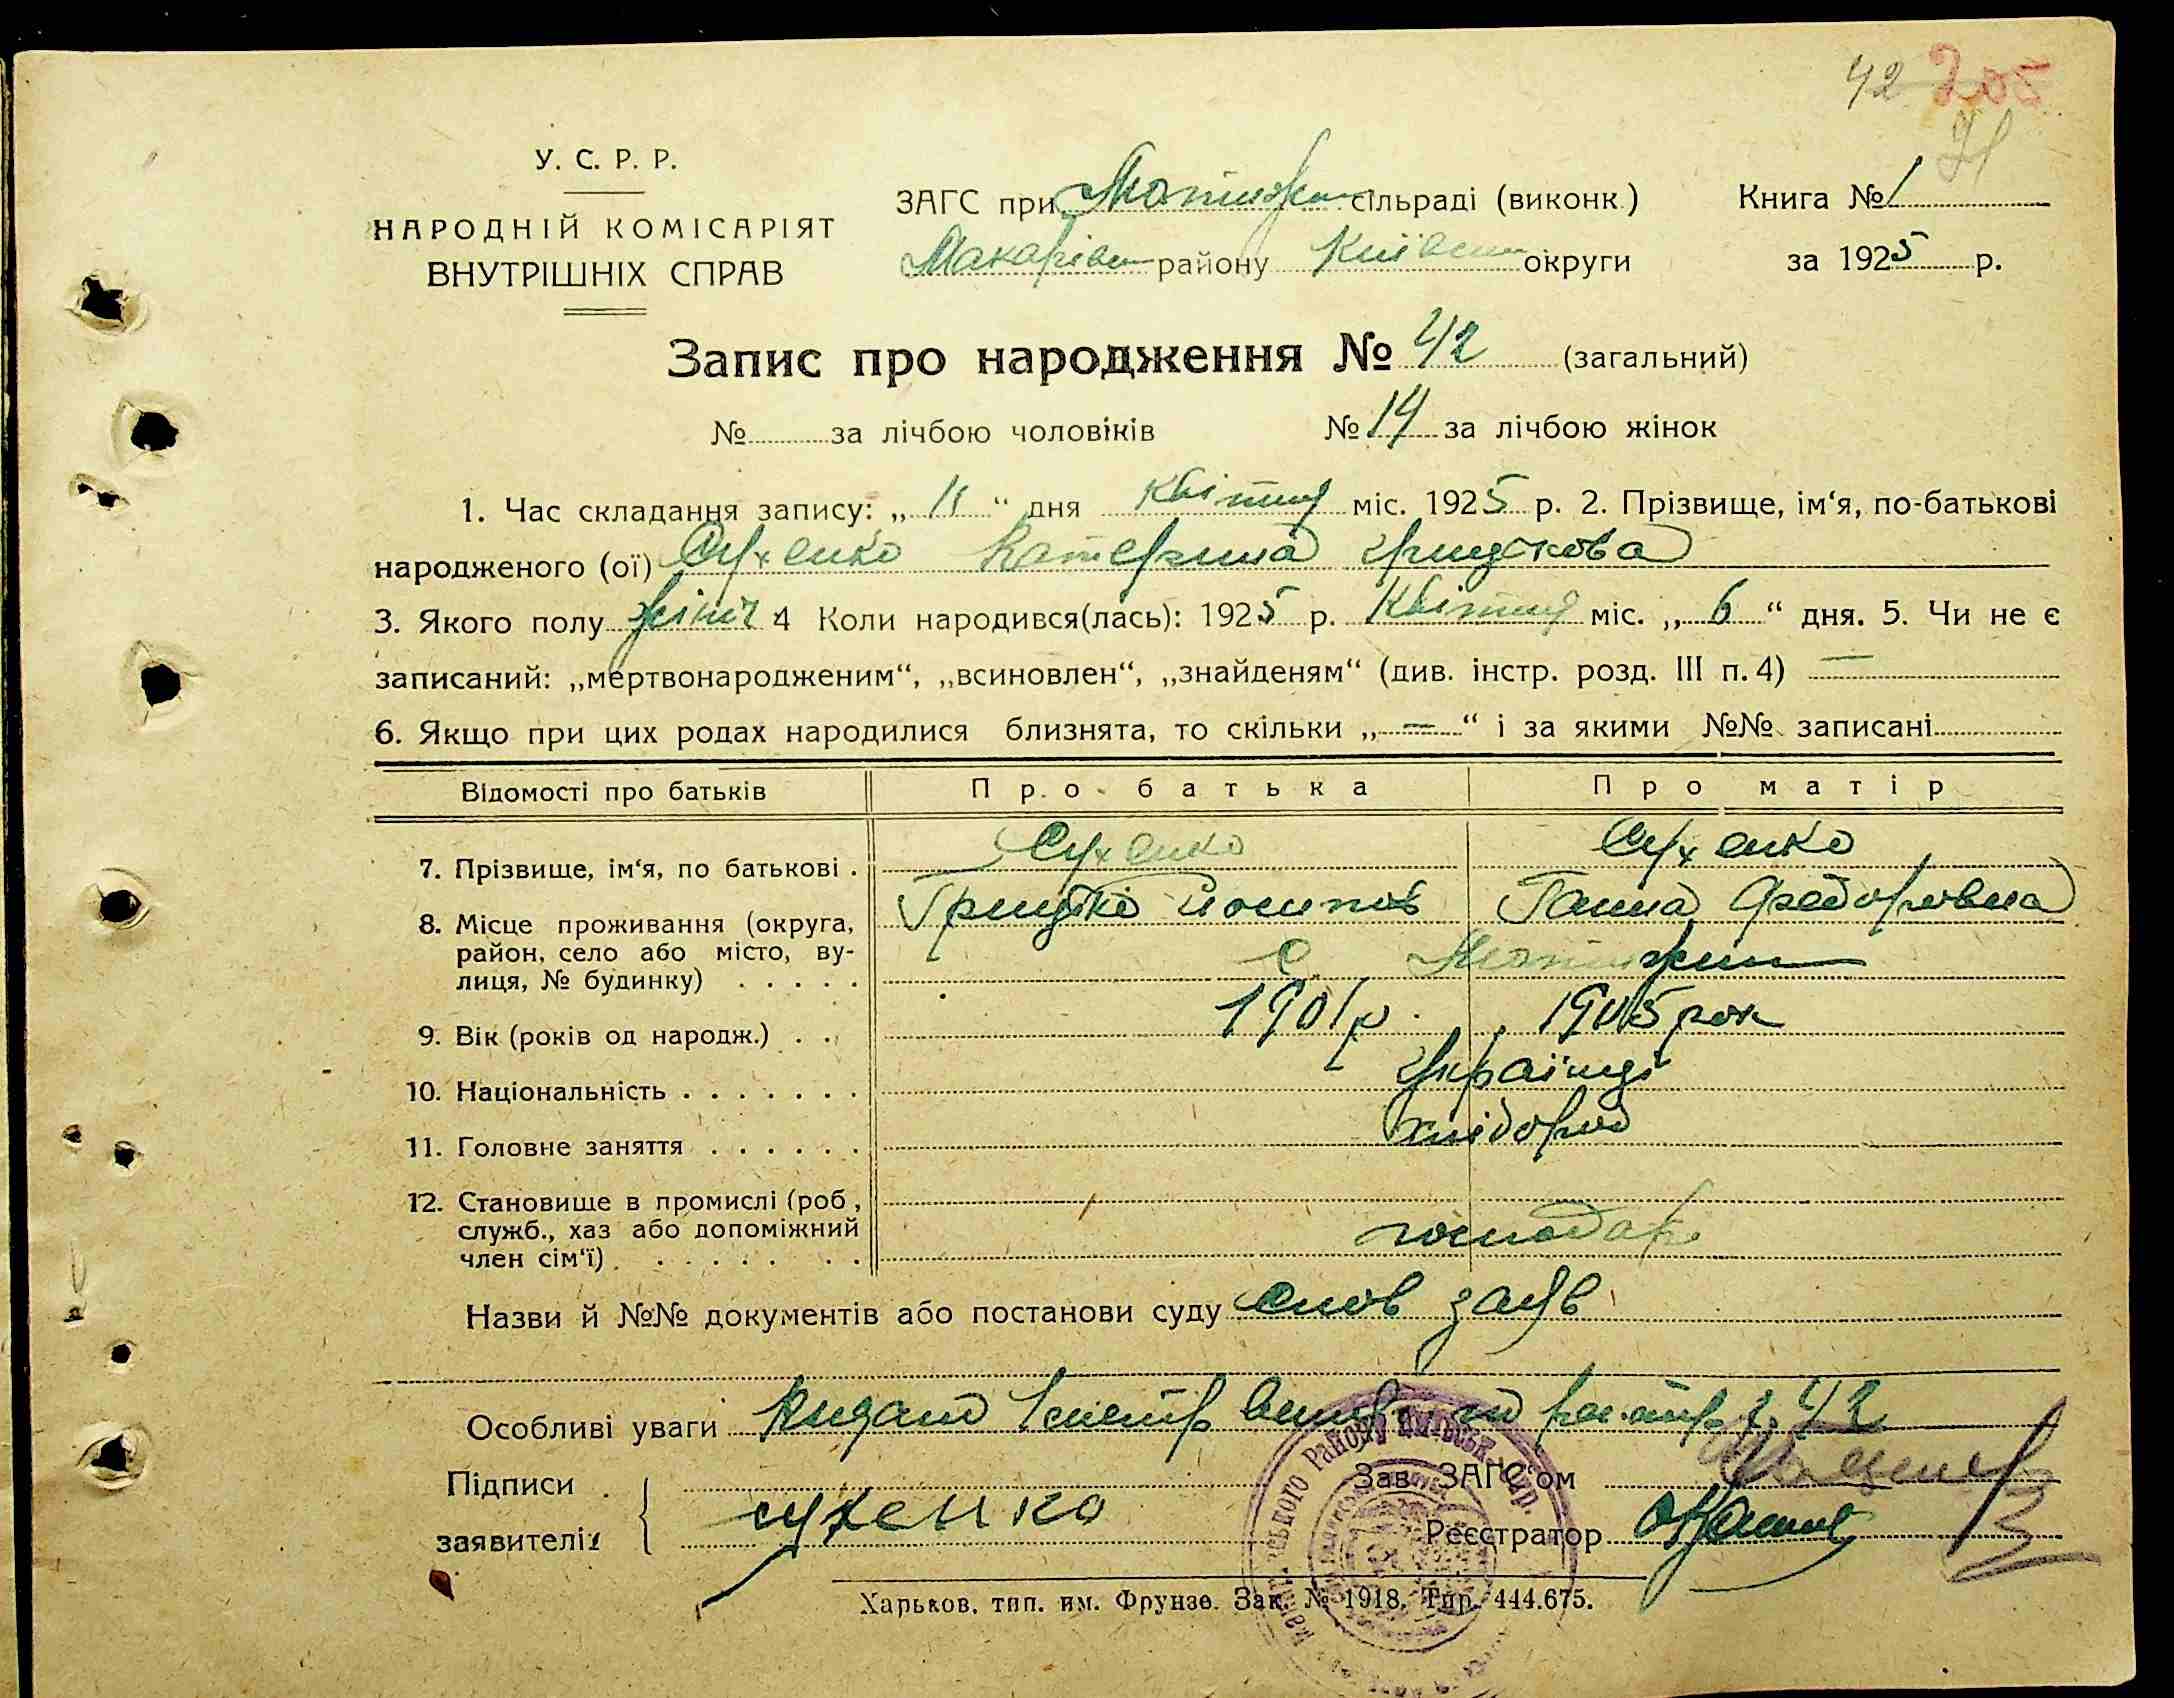 42 205
У. С. Р. Р.
НАРОДНІЙ КОМІСАРІЯТ
ВНУТРІШНІХ СПРАВ
ЗАГС при Мотижин сільраді (виконк.) Книга № 1
Макарівськ району Київськ округи за 1925 р.
Запис про народження № 42 (загальний)
№ за лічбою чоловіків № 14 за лічбою жінок
1. Час складання запису: „ 11 “ дня квітня міс. 1925 р. 2. Прізвище, ім‘я, по-батькові
народженого (ої) Сухенко Катерина Грицькова
3. Якого полу жіноч 4 Коли народився(лась): 1925 р. Квітня міс. „ 6 “ дня. 5. Чи не є
записаний: „мертвонародженим“, „всиновлен“, „знайденям“ (див. інстр. розд. III п. 4) —
6. Якщо при цих родах народилися близнята, то скільки „ — “ і за якими №№ записані
Відомості про батьків Про батька Про матір
7. Прізвище, ім‘я, по батькові . Сухенко Сухенко
Грицько Йосипов Ганна Федоровна
8. Місце проживання (округа, район, село або місто, вулиця, № будинку) с. Мотижин
9. Вік (років од народж.) 1901 р. 1905 рок
10. Національність Українці
11. Головне заняття хлібороб
12. Становище в промислі (роб, служб., хаз або допоміжний член сім‘ї) господар
Назви й №№ документів або постанови суду слов заяв
Особливі уваги Видано 42
Підписи заявителів Сухенко
Зав. ЗАГС‘ом
Реєстратор
Харьков, тип. им. Фрунзе. Зак. № 1918. Тир. 444.675.